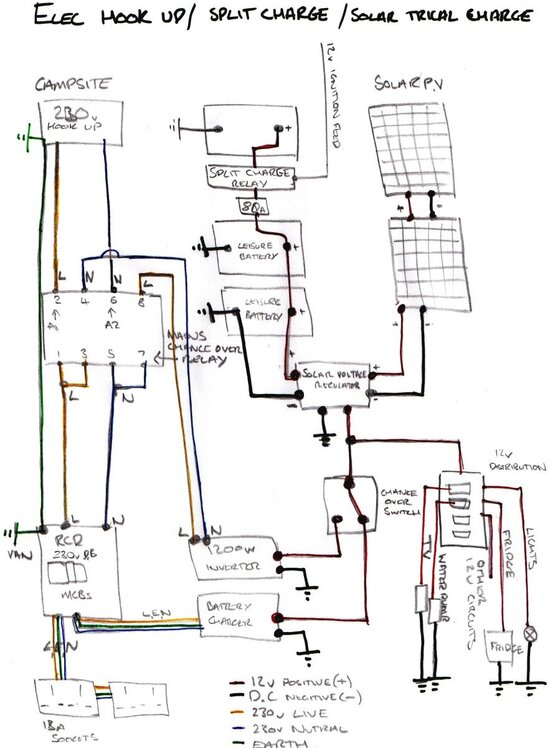 ELEC HOOK UP/ SPLIT CHARGE /SOLAR TRICAL CHARGE
CAMPSITE
230v
HOOK UP
12v IGNITION FEED
SOLAR P.V
+
SPLIT CHARGE
RELAY
80A
+ -
LEISURE
BATTERY
+
LEISURE
BATTERY
+
L N N L
2 4 6 8
A1 A2
MAINS
CHANGE OVER
RELAY
1 3 5 7
L N
+ -
+ SOLAR VOLTAGE +
- REGULATOR -
12V
DISTRIBUTION
CHANGE
OVER
SWITCH
L N
VAN
RCR
230v
MCBs
L N
1200W
INVERTER
BATTERY
CHARGER
L.E.N
TV
WATER PUMP
OTHER
12V CIRCUITS
FRIDGE
LIGHTS
FRIDGE
L N
13A
SOCKETS
12v POSITIVE(+)
D.C NEGITIVE(-)
230v LIVE
230v NUTRAL
EARTH